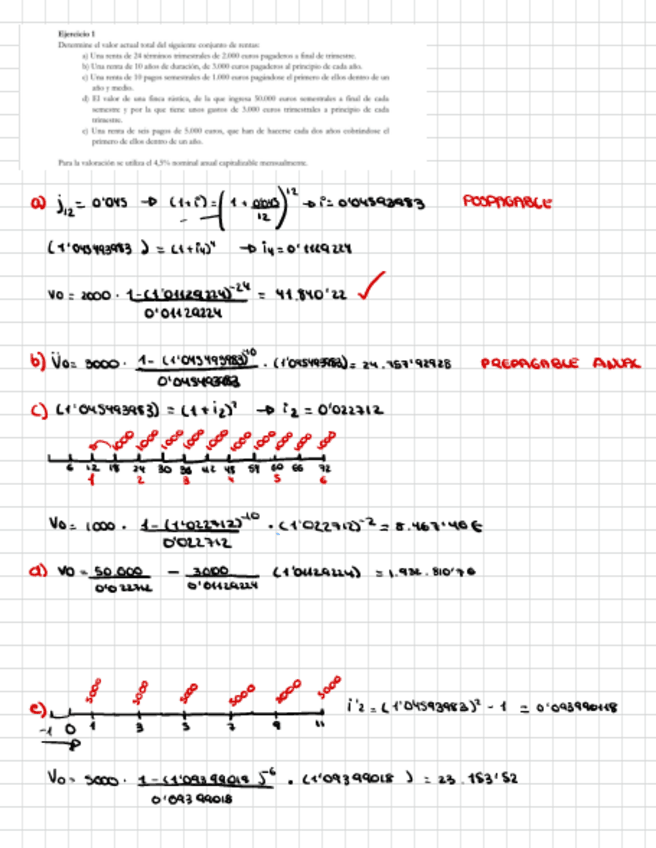 Ejercicio 1
Determine el valor actual total del siguiente conjunto de rentas:
a) Una renta de 24 términos trimestrales de 2.000 euros pagaderos a final de trimestre.
b) Una renta de 10 años de duración, de 3.000 euros pagaderos al principio de cada año.
c) Una renta de 10 pagos semestrales de 1.000 euros pagándose el primero de ellos dentro de un
año y medio.
d) El valor de una finca rústica, de la que ingresa 50.000 euros semestrales a final de cada
semestre y por la que tiene unos gastos de 3.000 euros trimestrales a principio de cada
trimestre.
e) Una renta de seis pagos de 5.000 euros, que han de hacerse cada dos años cobrándose el
primero de ellos dentro de un año.
Para la valoración se utiliza el 4,5% nominal anual capitalizable mensualmente.
a) j12 = 0'045 → (1+i) = (1 + 0'045/12)^12 → i = 0'04593983 POSPAGABLE
(1'045493983) = (1+i4)^4 → i4 =
V0 = 2000 · 1-(1'01129224)^-24 / 0'01129224 = 41.840'22 ✓
b) V̈0 = 3000 · 1-(1'045493983)^-10 / 0'045493983 · (1'045493983) = 24.757'92928 PREPAGABLE ANUAL
c) (1'045493983) = (1+i2)² → i2 = 0'022712
1000 1000 1000 1000 1000 1000 1000 1000 1000 1000
6 12 18 24 30 36 42 48 54 60 66 72
1 2 3 4 5 6
V0 = 1000 · 1-(1'022712)^-10 / 0'022712 · (1'022712)^-2 = 8.467'40€
d) V0 = 50.000 / 0'022712 - 3000 / 0'01129224 (1'01129224) = 1.932.810'76
5000 5000 5000 5000 5000 5000
e) -1 0 1 3 5 7 9 11 i'2 = (1'04593983)² - 1 = 0'093990118
V0 = 5000 · 1-(1'09399018)^-6 / 0'09399018 · (1'09399018) = 23.153'52